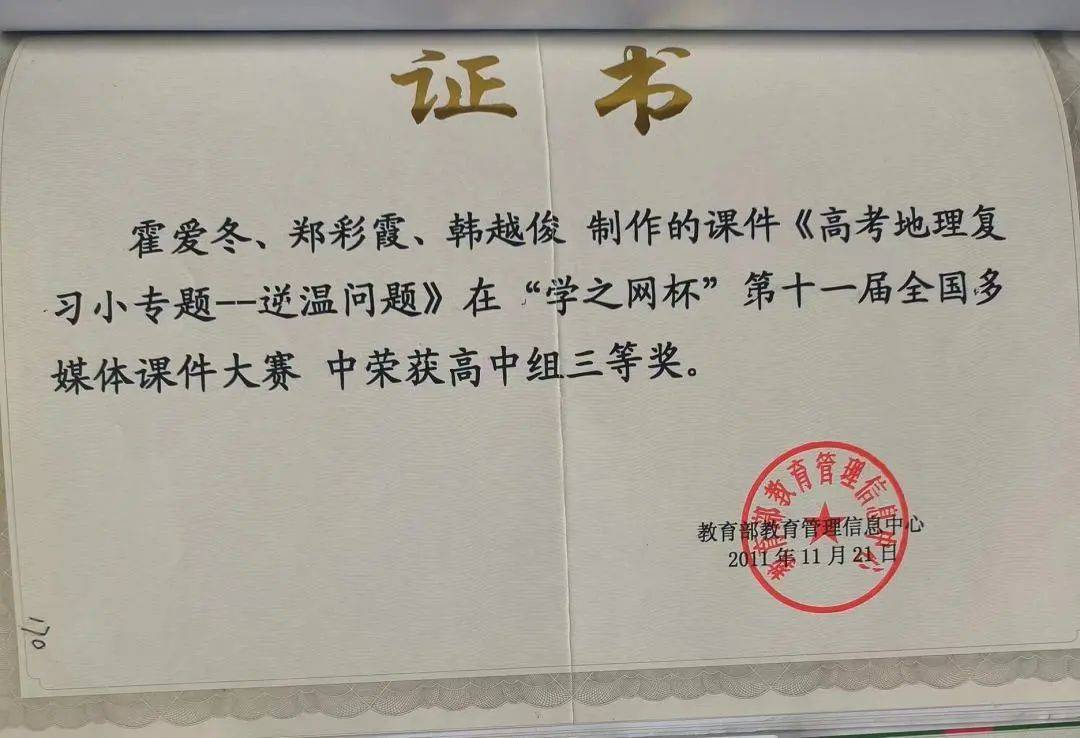 证书
霍爱冬、郑彩霞、韩越俊 制作的课件《高考地理复
习小专题--逆温问题》在“学之网杯”第十一届全国多
媒体课件大赛 中荣获高中组三等奖。
教育部教育管理信息中心
教育部教育管理信息中心
2011年11月21日
170